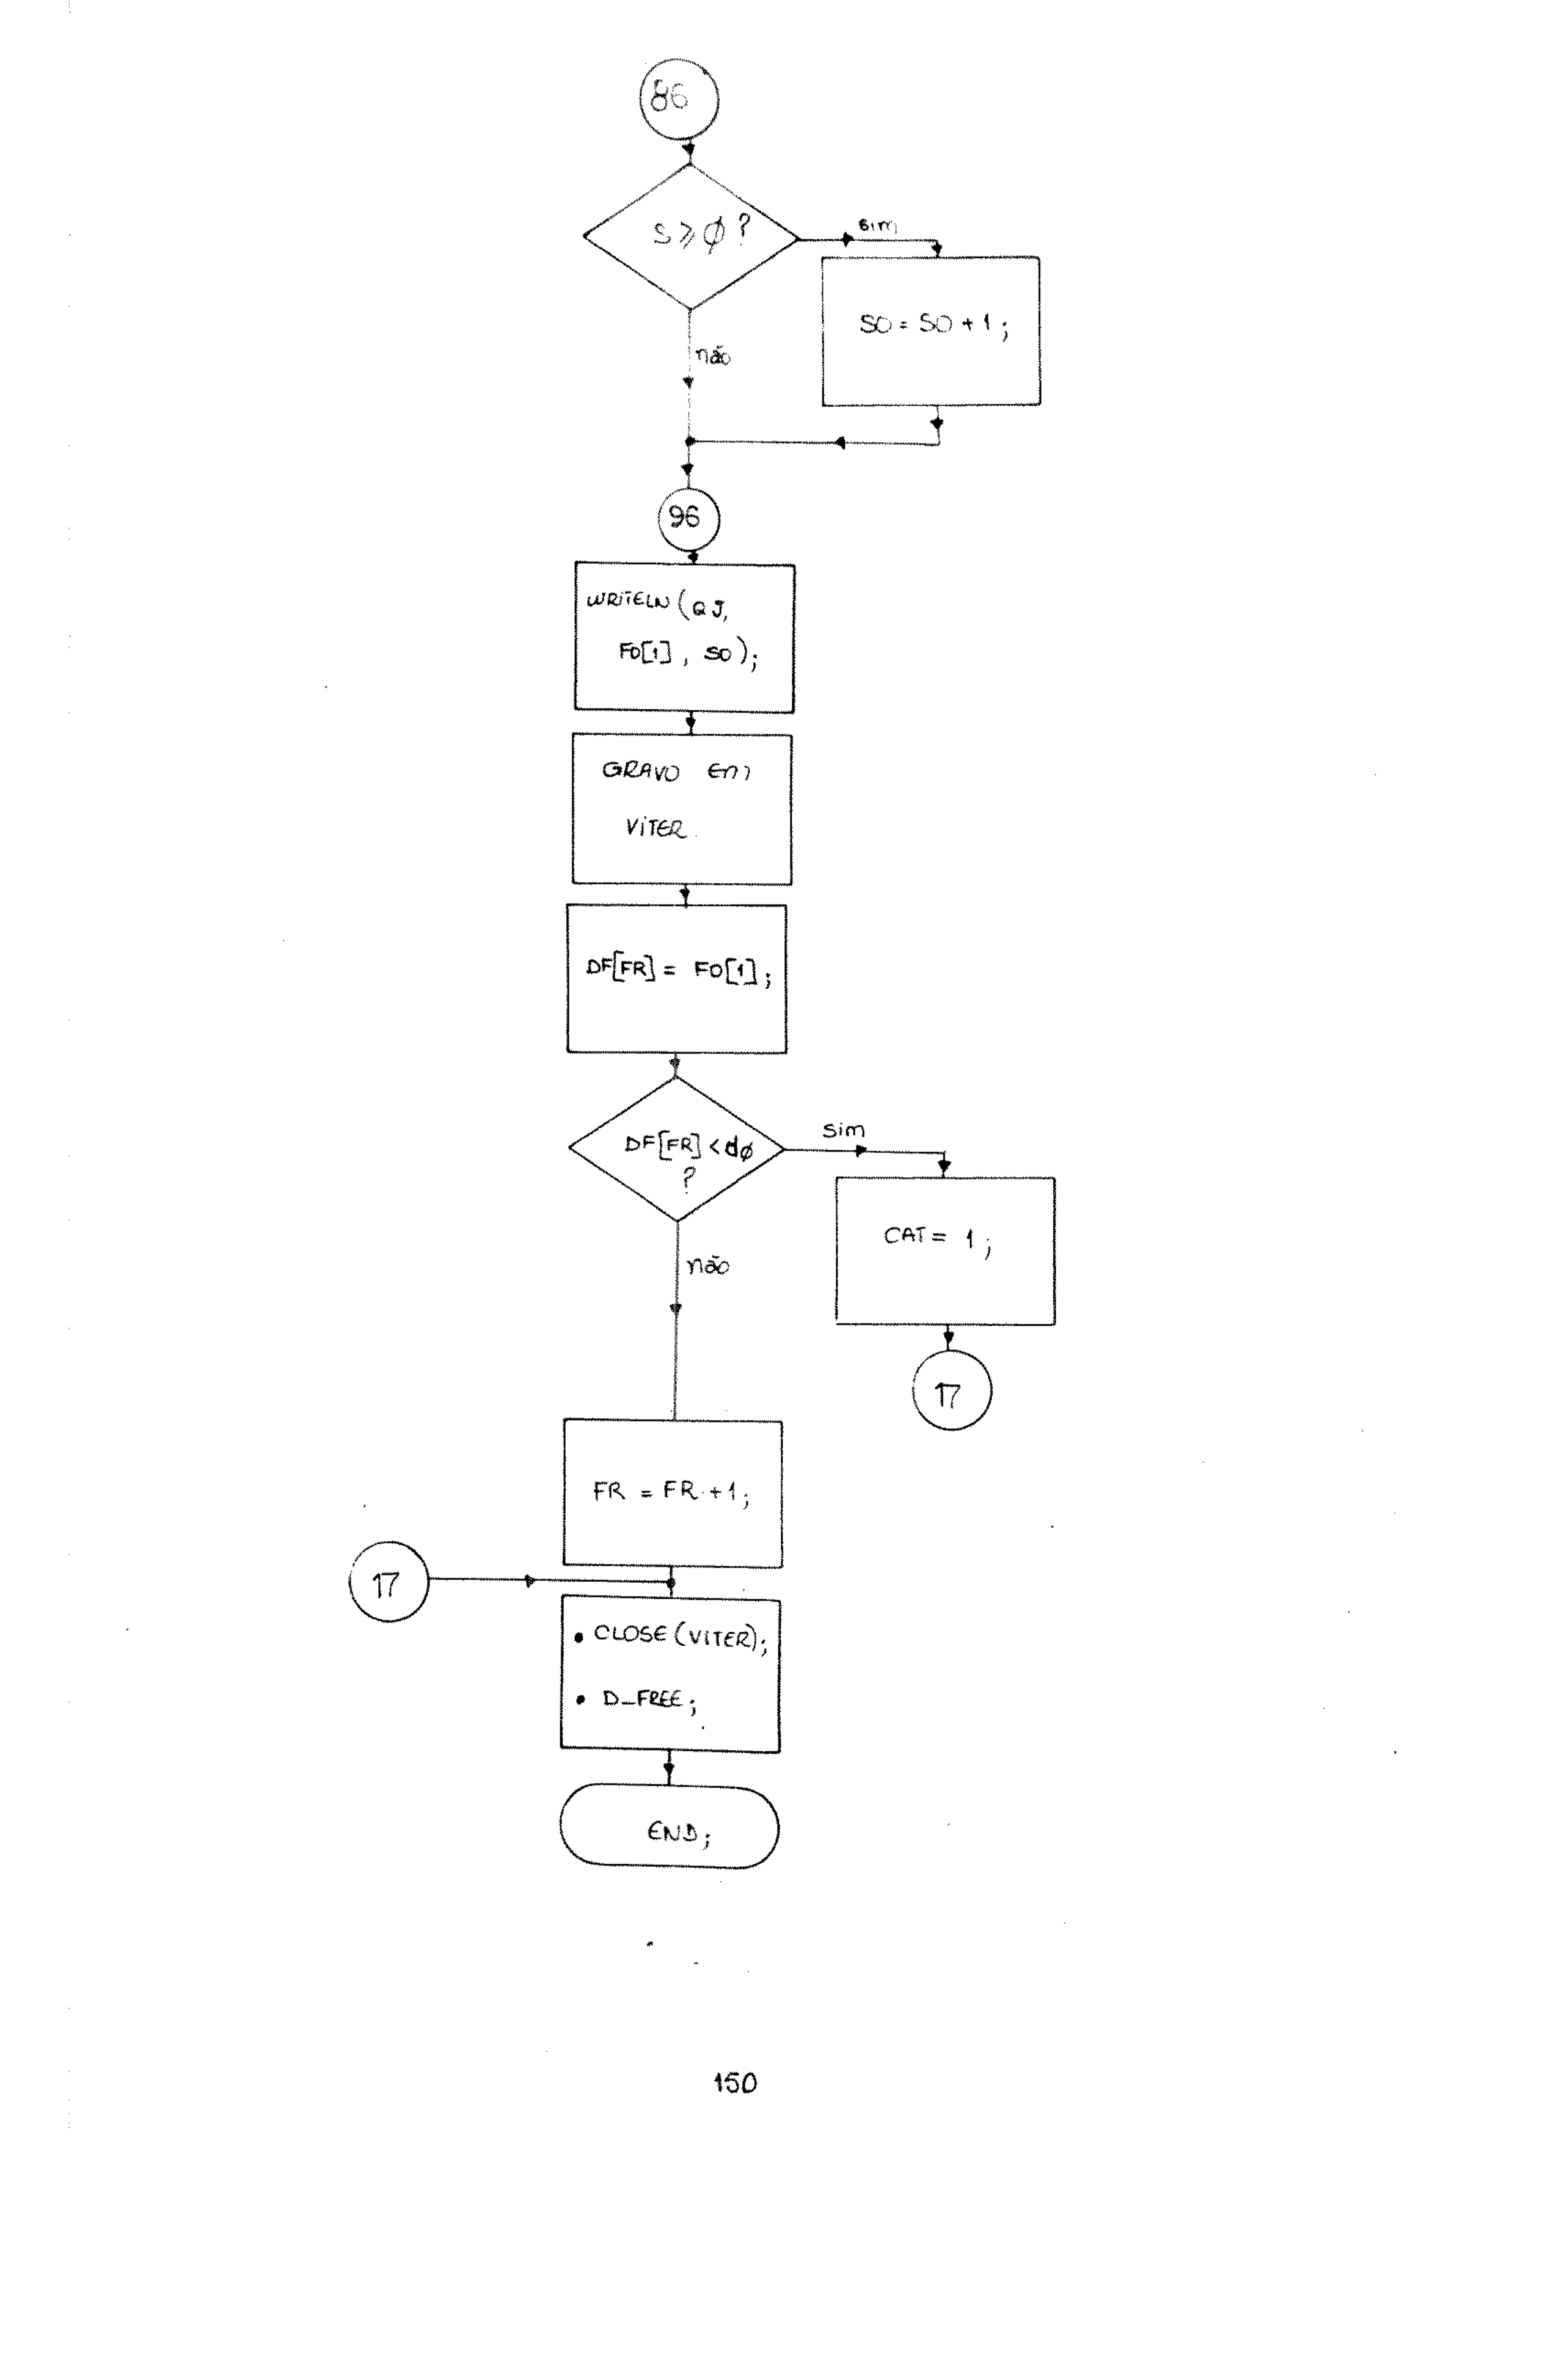 86
S ⩾ ϕ ?
sim
SO = SO + 1 ;
não
96
WRITELN ( QJ,
FO[1] , SO ) ;
GRAVO EM
VITER.
DF[FR] = FO[1] ;
DF[FR] < dϕ
?
sim
CAT = 1 ;
não
17
FR = FR + 1 ;
17
• CLOSE (VITER) ;
• D_FREE ;
END ;
150